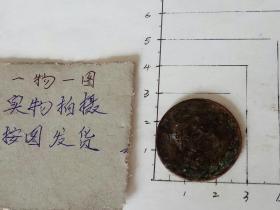 一物一图
实物拍摄
按图发货
6
5
4
3
2
1
1 2 3 4